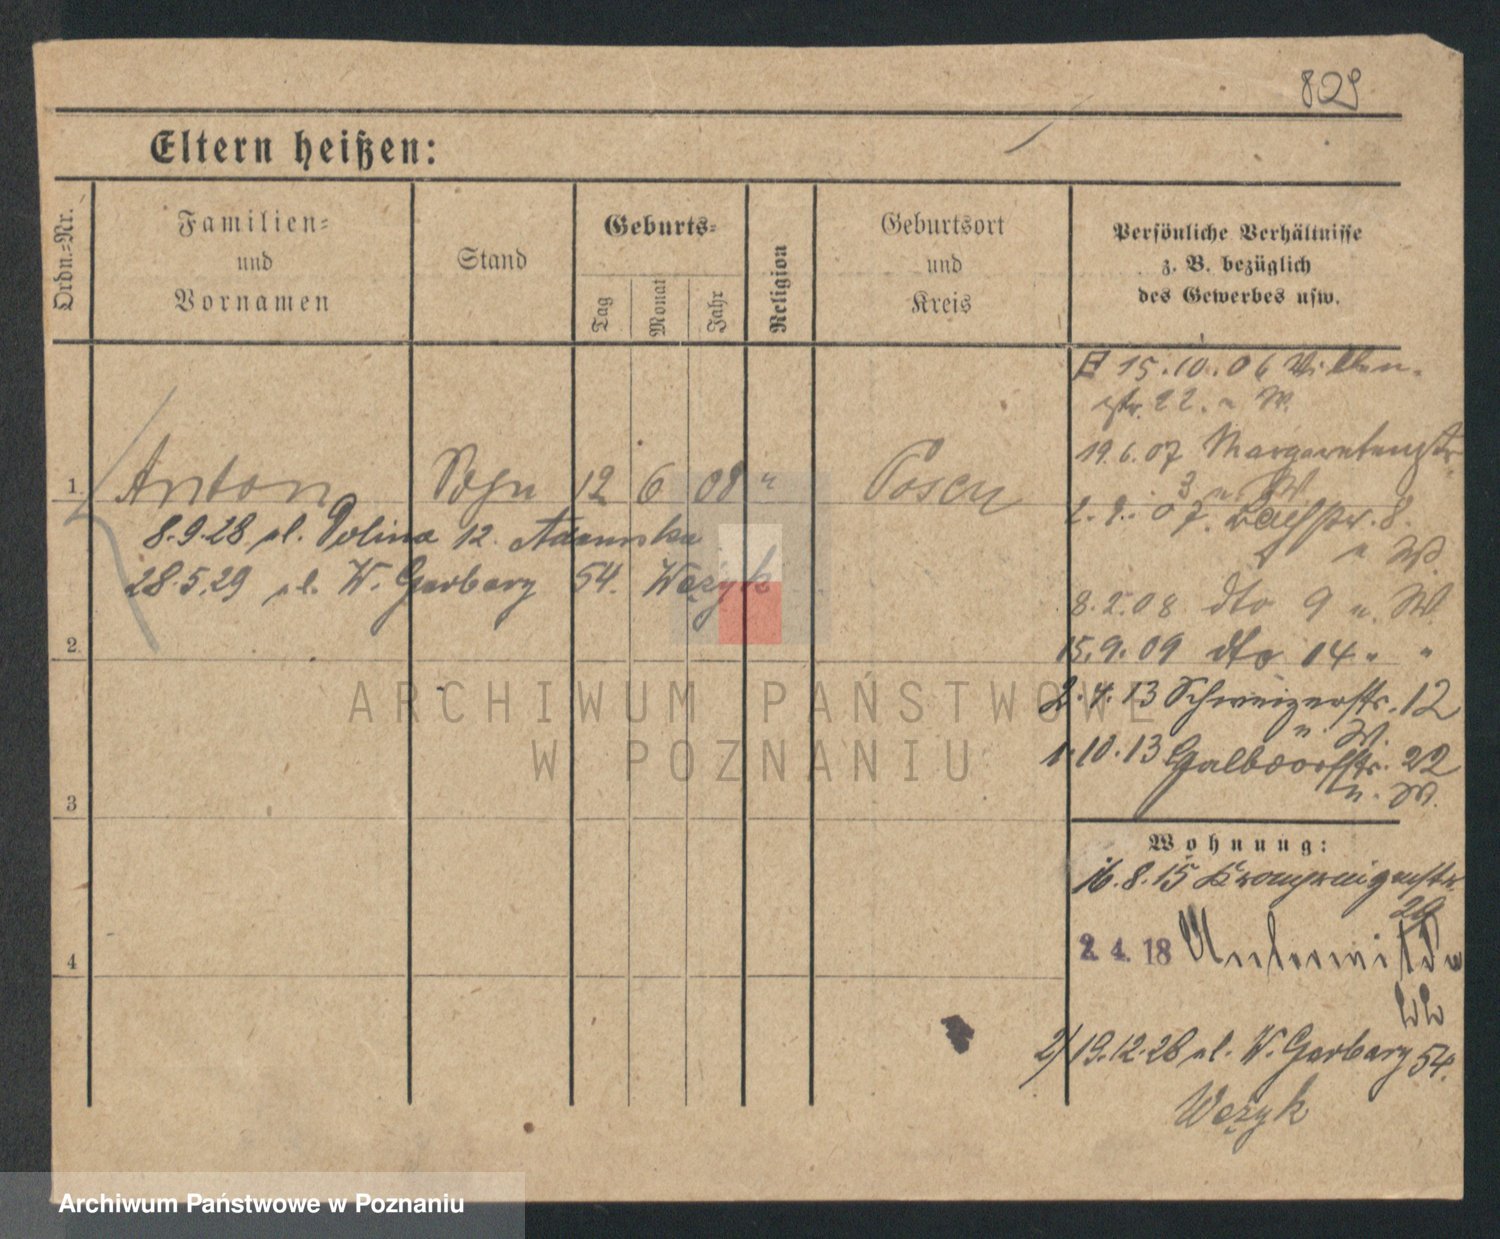 829
Eltern heißen:
Ordn.-Nr.
Familien-
und
Vornamen
Stand
Geburts-
Tag
Monat
Jahr
Religion
Geburtsort
und
Kreis
Persönliche Verhältnisse
z. B. bezüglich
des Gewerbes usw.
15.10.06
str. 22. u W.
19.6.07 Margaretenstr.
3 u. W.
07. Bachstr. 8.
u W.
8.2.08 dto 9 u. W.
15.9.09 dto 14 " "
2.4.13 Schweizerstr. 12
u. W.
1.10.13 22
u. W.
1. Anton Sohn 12 6 08 " Posen
8.9.28 ul. 12. Adamska
28.5.29 ul. W. Garbary 54. Wężyk
2.
3
4
Wohnung:
16.8.15
29
2. 4. 18
2/ 19.12.28 ul. W. Garbary 54.
Wężyk
ARCHIWUM PAŃSTWOWE
W POZNANIU
Archiwum Państwowe w Poznaniu